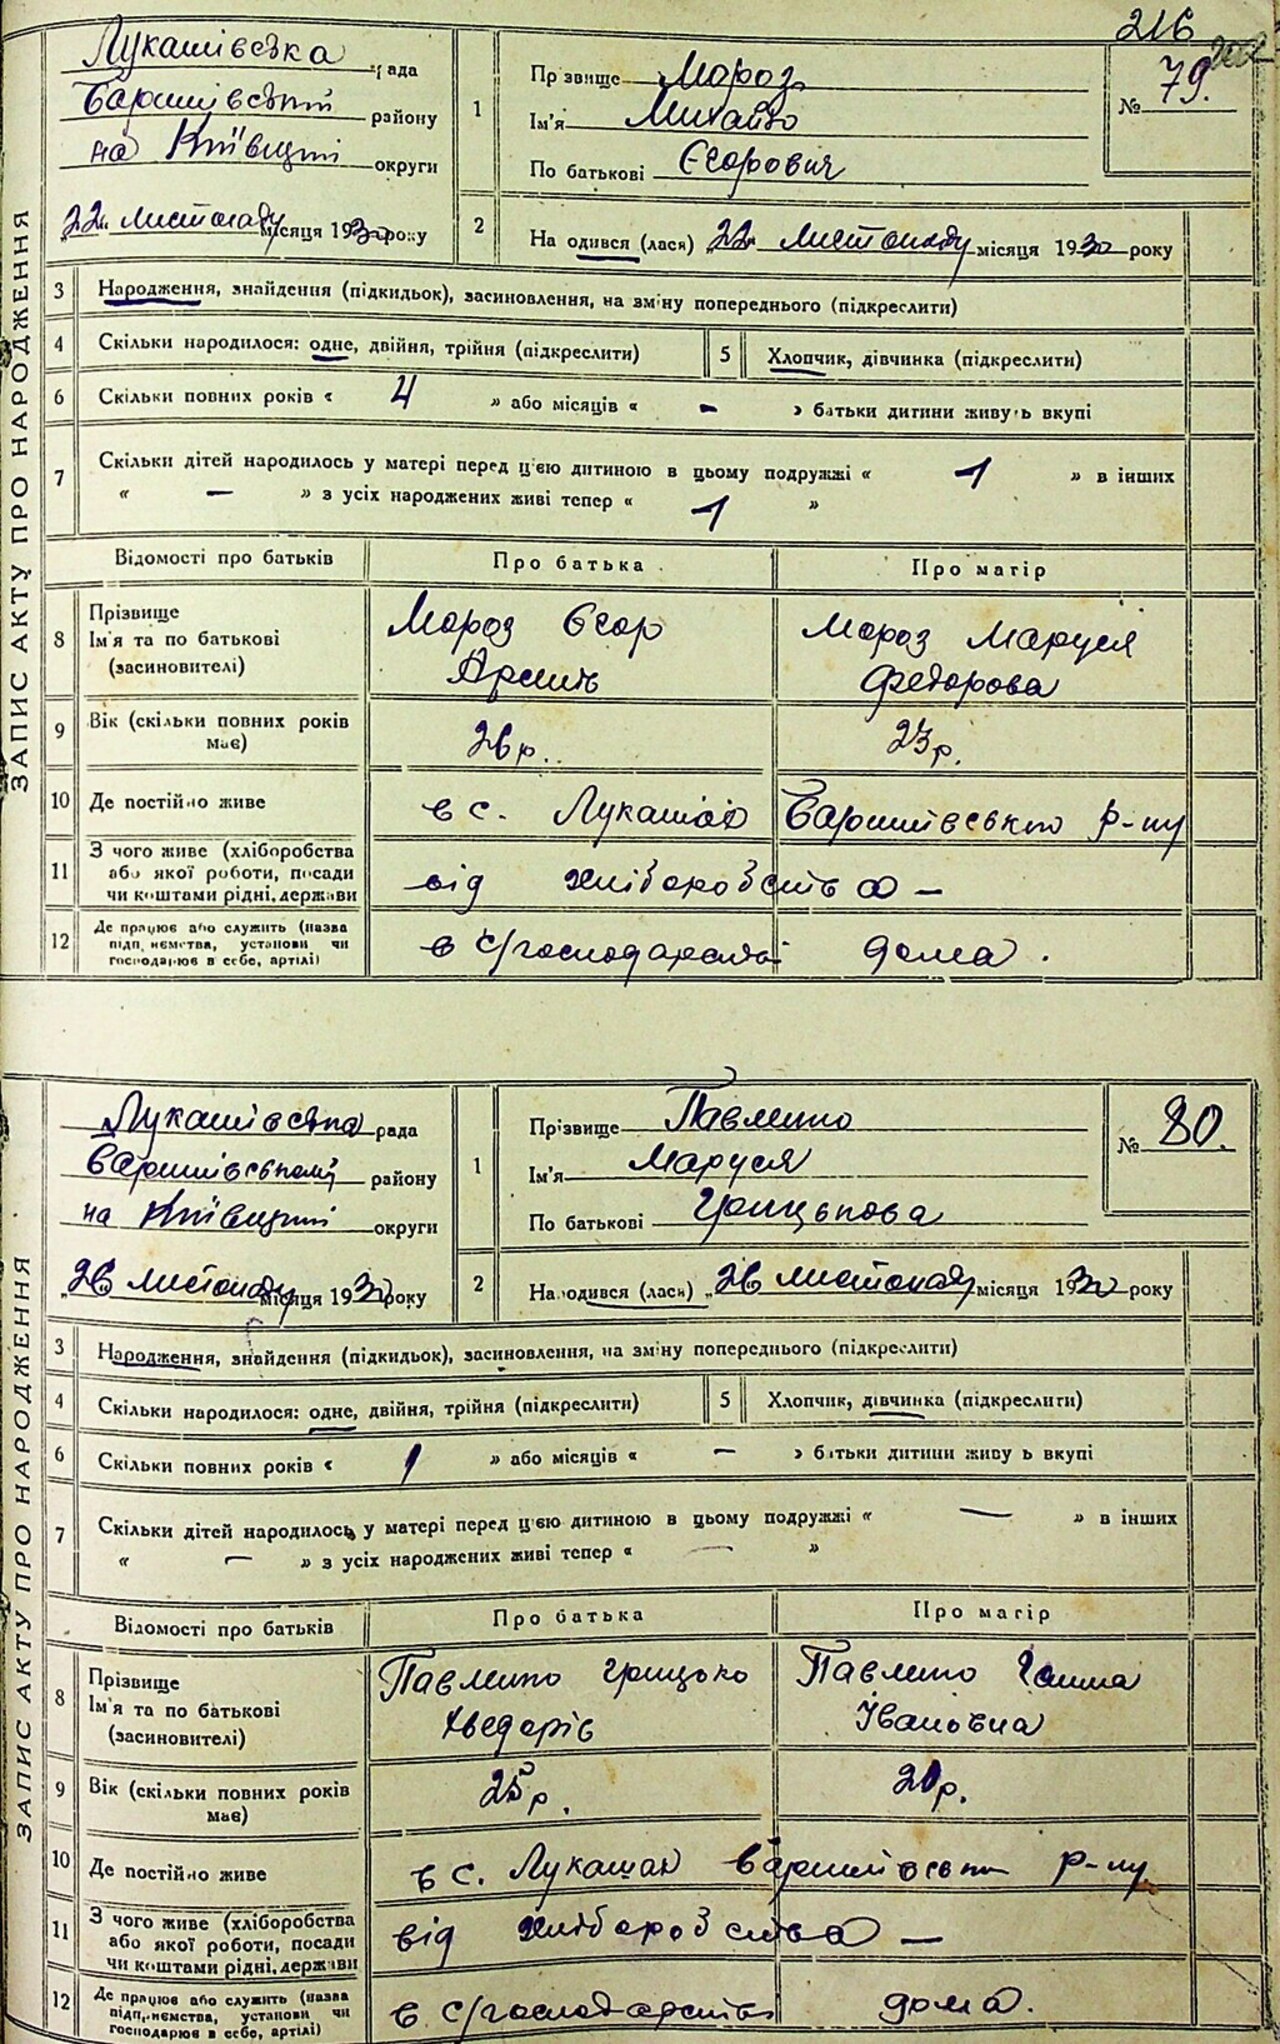 216
ЗАПИС АКТУ ПРО НАРОДЖЕННЯ
Лукашівська рада
Баришівський району
на Київщині округи
„22“ листопаду місяця 1930 року
1
Прізвище Мороз
Ім'я Михайло
По батькові Єгорович
№ 79.
2
Народився (лася) „22“ листопаду місяця 1930 року
3 Народження, знайдення (підкидьок), засиновлення, на зміну попереднього (підкреслити)
4 Скільки народилося: одне, двійня, трійня (підкреслити)
5 Хлопчик, дівчинка (підкреслити)
6 Скільки повних років « 4 » або місяців « - » батьки дитини живуть вкупі
7 Скільки дітей народилось у матері перед цією дитиною в цьому подружжі « 1 » в інших
« — » з усіх народжених живі тепер « 1 »
Відомості про батьків Про батька Про матір
8 Прізвище
Ім'я та по батькові
(засновителі)
Мороз Єгор
Арсить
Мороз Маруся
Федорова
9 Вік (скільки повних років має)
26 р. 23 р.
10 Де постійно живе в с. Лукашах Баришівського р-ну
11 З чого живе (хліборобства
або якої роботи, посади
чи коштами рідні, держави
від хліборобства —
12 Де працює або служить (назва
підприємства, установи чи
господарює в себе, артілі)
в с/господарстві дома.
ЗАПИС АКТУ ПРО НАРОДЖЕННЯ
Лукашівська рада
Баришівський району
на Київщині округи
„26“ листопаду місяця 1930 року
1
Прізвище Павленко
Ім'я Маруся
По батькові Грицькова
№ 80.
2
Народився (лася) „26 листопаду місяця 1930 року
3 Народження, знайдення (підкидьок), засиновлення, на зміну попереднього (підкреслити)
4 Скільки народилося: одне, двійня, трійня (підкреслити)
5 Хлопчик, дівчинка (підкреслити)
6 Скільки повних років « 1 » або місяців « — » батьки дитини живуть вкупі
7 Скільки дітей народилось у матері перед цією дитиною в цьому подружжі « — » в інших
« — » з усіх народжених живі тепер « — »
Відомості про батьків Про батька Про матір
8 Прізвище
Ім'я та по батькові
(засиновителі)
Павленко Грицько
Хведорів
Павленко Ганна
Івановна
9 Вік (скільки повних років має)
25 р. 20 р.
10 Де постійно живе в с. Лукашах Баришівськ р-ну
11 З чого живе (хліборобства
або якої роботи, посади
чи коштами рідні, держави
від хліборобства —
12 Де працює або служить (назва
підприємства, установи чи
господарює в себе, артілі)
в с/господарстві дома.